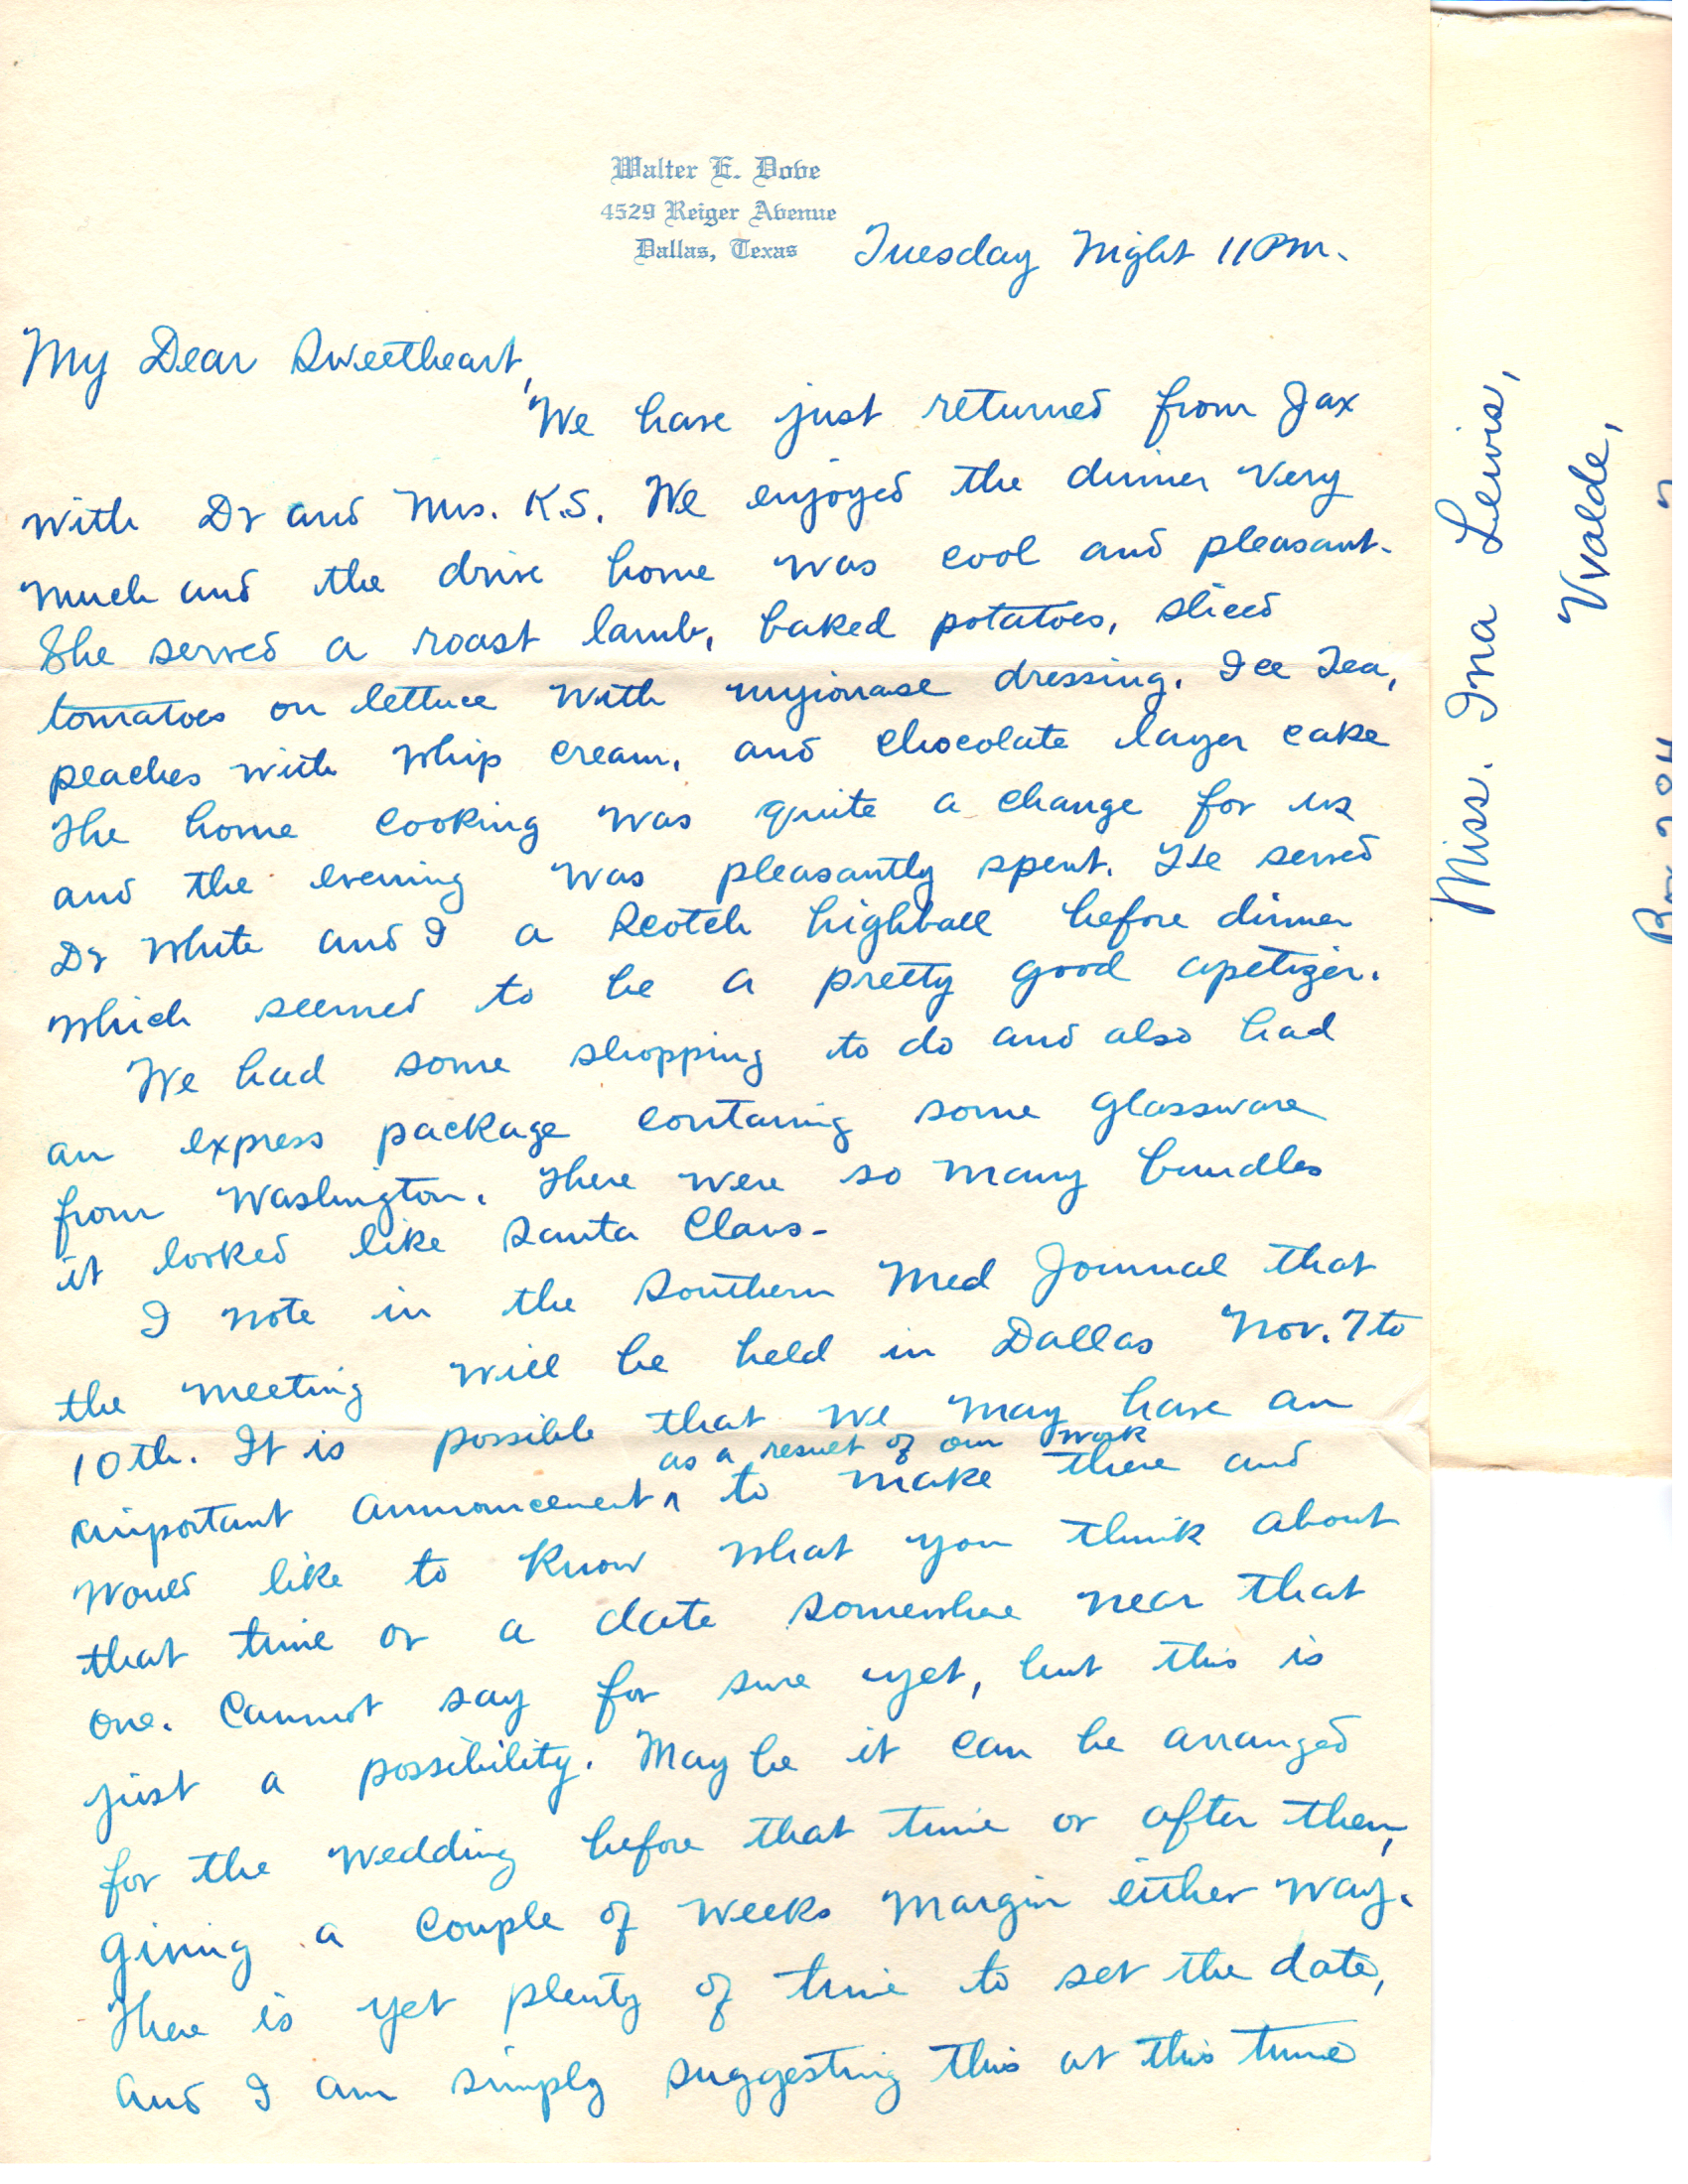 Walter E. Dove
4529 Reiger Avenue
Dallas, Texas
Tuesday Night 11 PM.
My Dear Sweetheart,
We have just returned from Jax
with Dr and Mrs. K.S. We enjoyed the dinner very
much and the drive home was cool and pleasant.
She served a roast lamb, baked potatoes, sliced
tomatoes on lettuce with myionase dressing. Ice Tea,
peaches with whip cream, and chocolate layer cake
The home cooking was quite a change for us
and the evening was pleasantly spent. He served
Dr White and I a Scotch highball before dinner
which seemed to be a pretty good apetizer.
We had some shopping to do and also had
an express package containg some glassware
from Washington. There were so many bundles
it looked like Santa Claus-
I note in the Southern Med Journal that
the meeting will be held in Dallas Nov. 7 to
10th. It is possible that we may have an
as a result of our work
important announcement ^ to make there and
would like to know what you think about
that time or a date somewhere near that
one. Cannot say for sure yet, but this is
just a possibility. May be it can be arranged
for the wedding before that time or after then,
giving a couple of weeks margin either way.
There is yet plenty of time to set the date,
and I am simply suggesting this at this time
Miss. Ina Lewis,
Uvalde,
Box